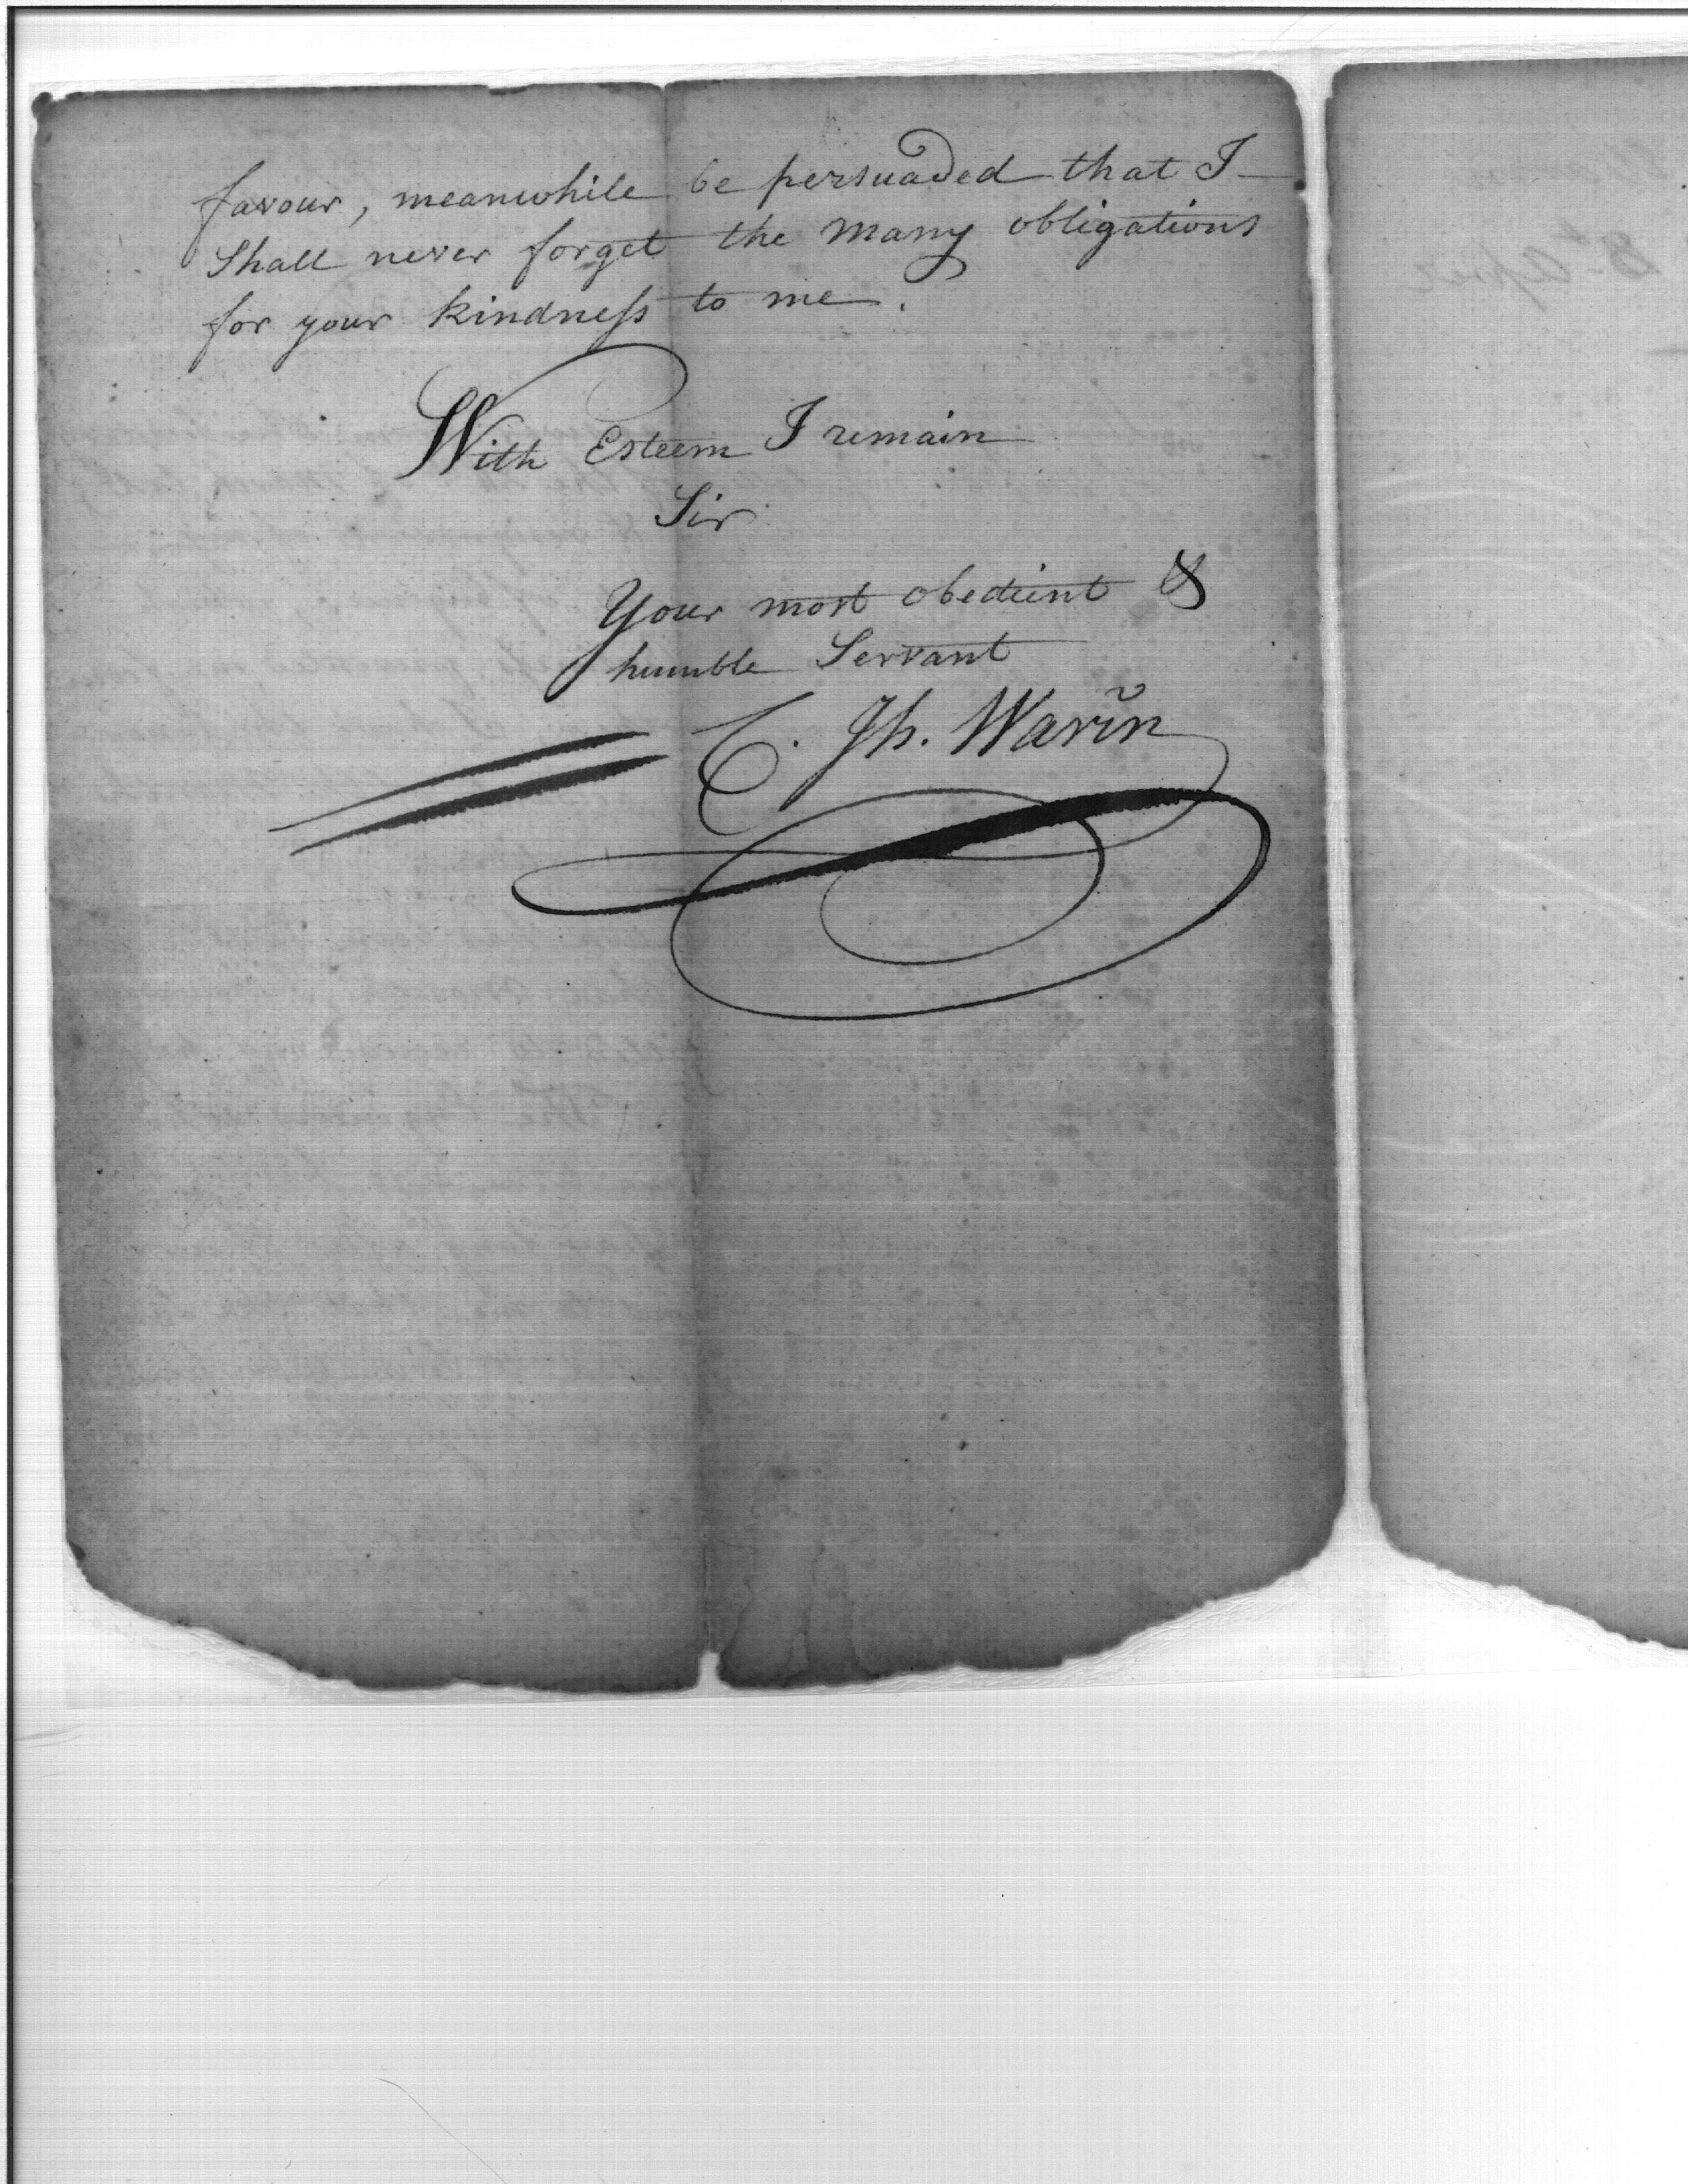 favour, meanwhile be persuaded that I
Shall never forget the many obligations
for your kindness to me.
With Esteem I remain
Sir
Your most obedient &
humble Servant
C. Jh. Warin